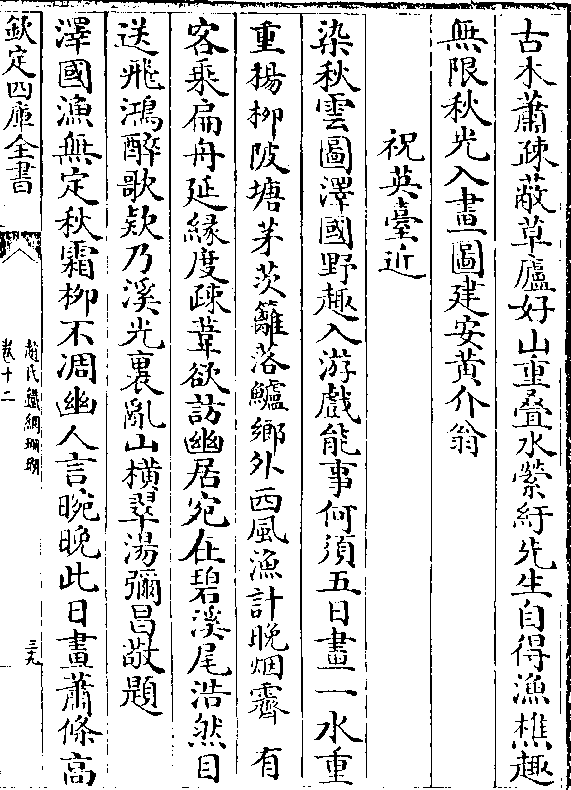 古木蕭疎蔽草廬好山重疊水縈紆先生自得漁樵趣
無限秋光入畫圖建安黄介翁
祝英臺近
染秋雲圖澤國野趣入游戲能事何須五日畫一水重
重楊柳陂塘茅茨籬落鱸鄉外西風漁計晚烟霽 有
客乘扁舟延緣度疎葦欲訪幽居宛在碧溪尾浩然目
送飛鴻醉歌欵乃溪光裏亂山橫翠湯彌昌敬題
澤國漁無定秋霜柳不凋幽人言晼晚此日畫蕭條高
欽定四庫全書
趙氏鐵網珊瑚
卷十二
三九